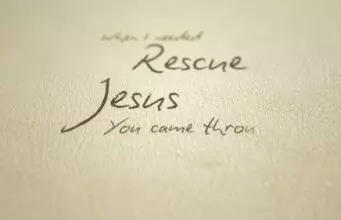 When I needed
Rescue
Jesus
You came throu